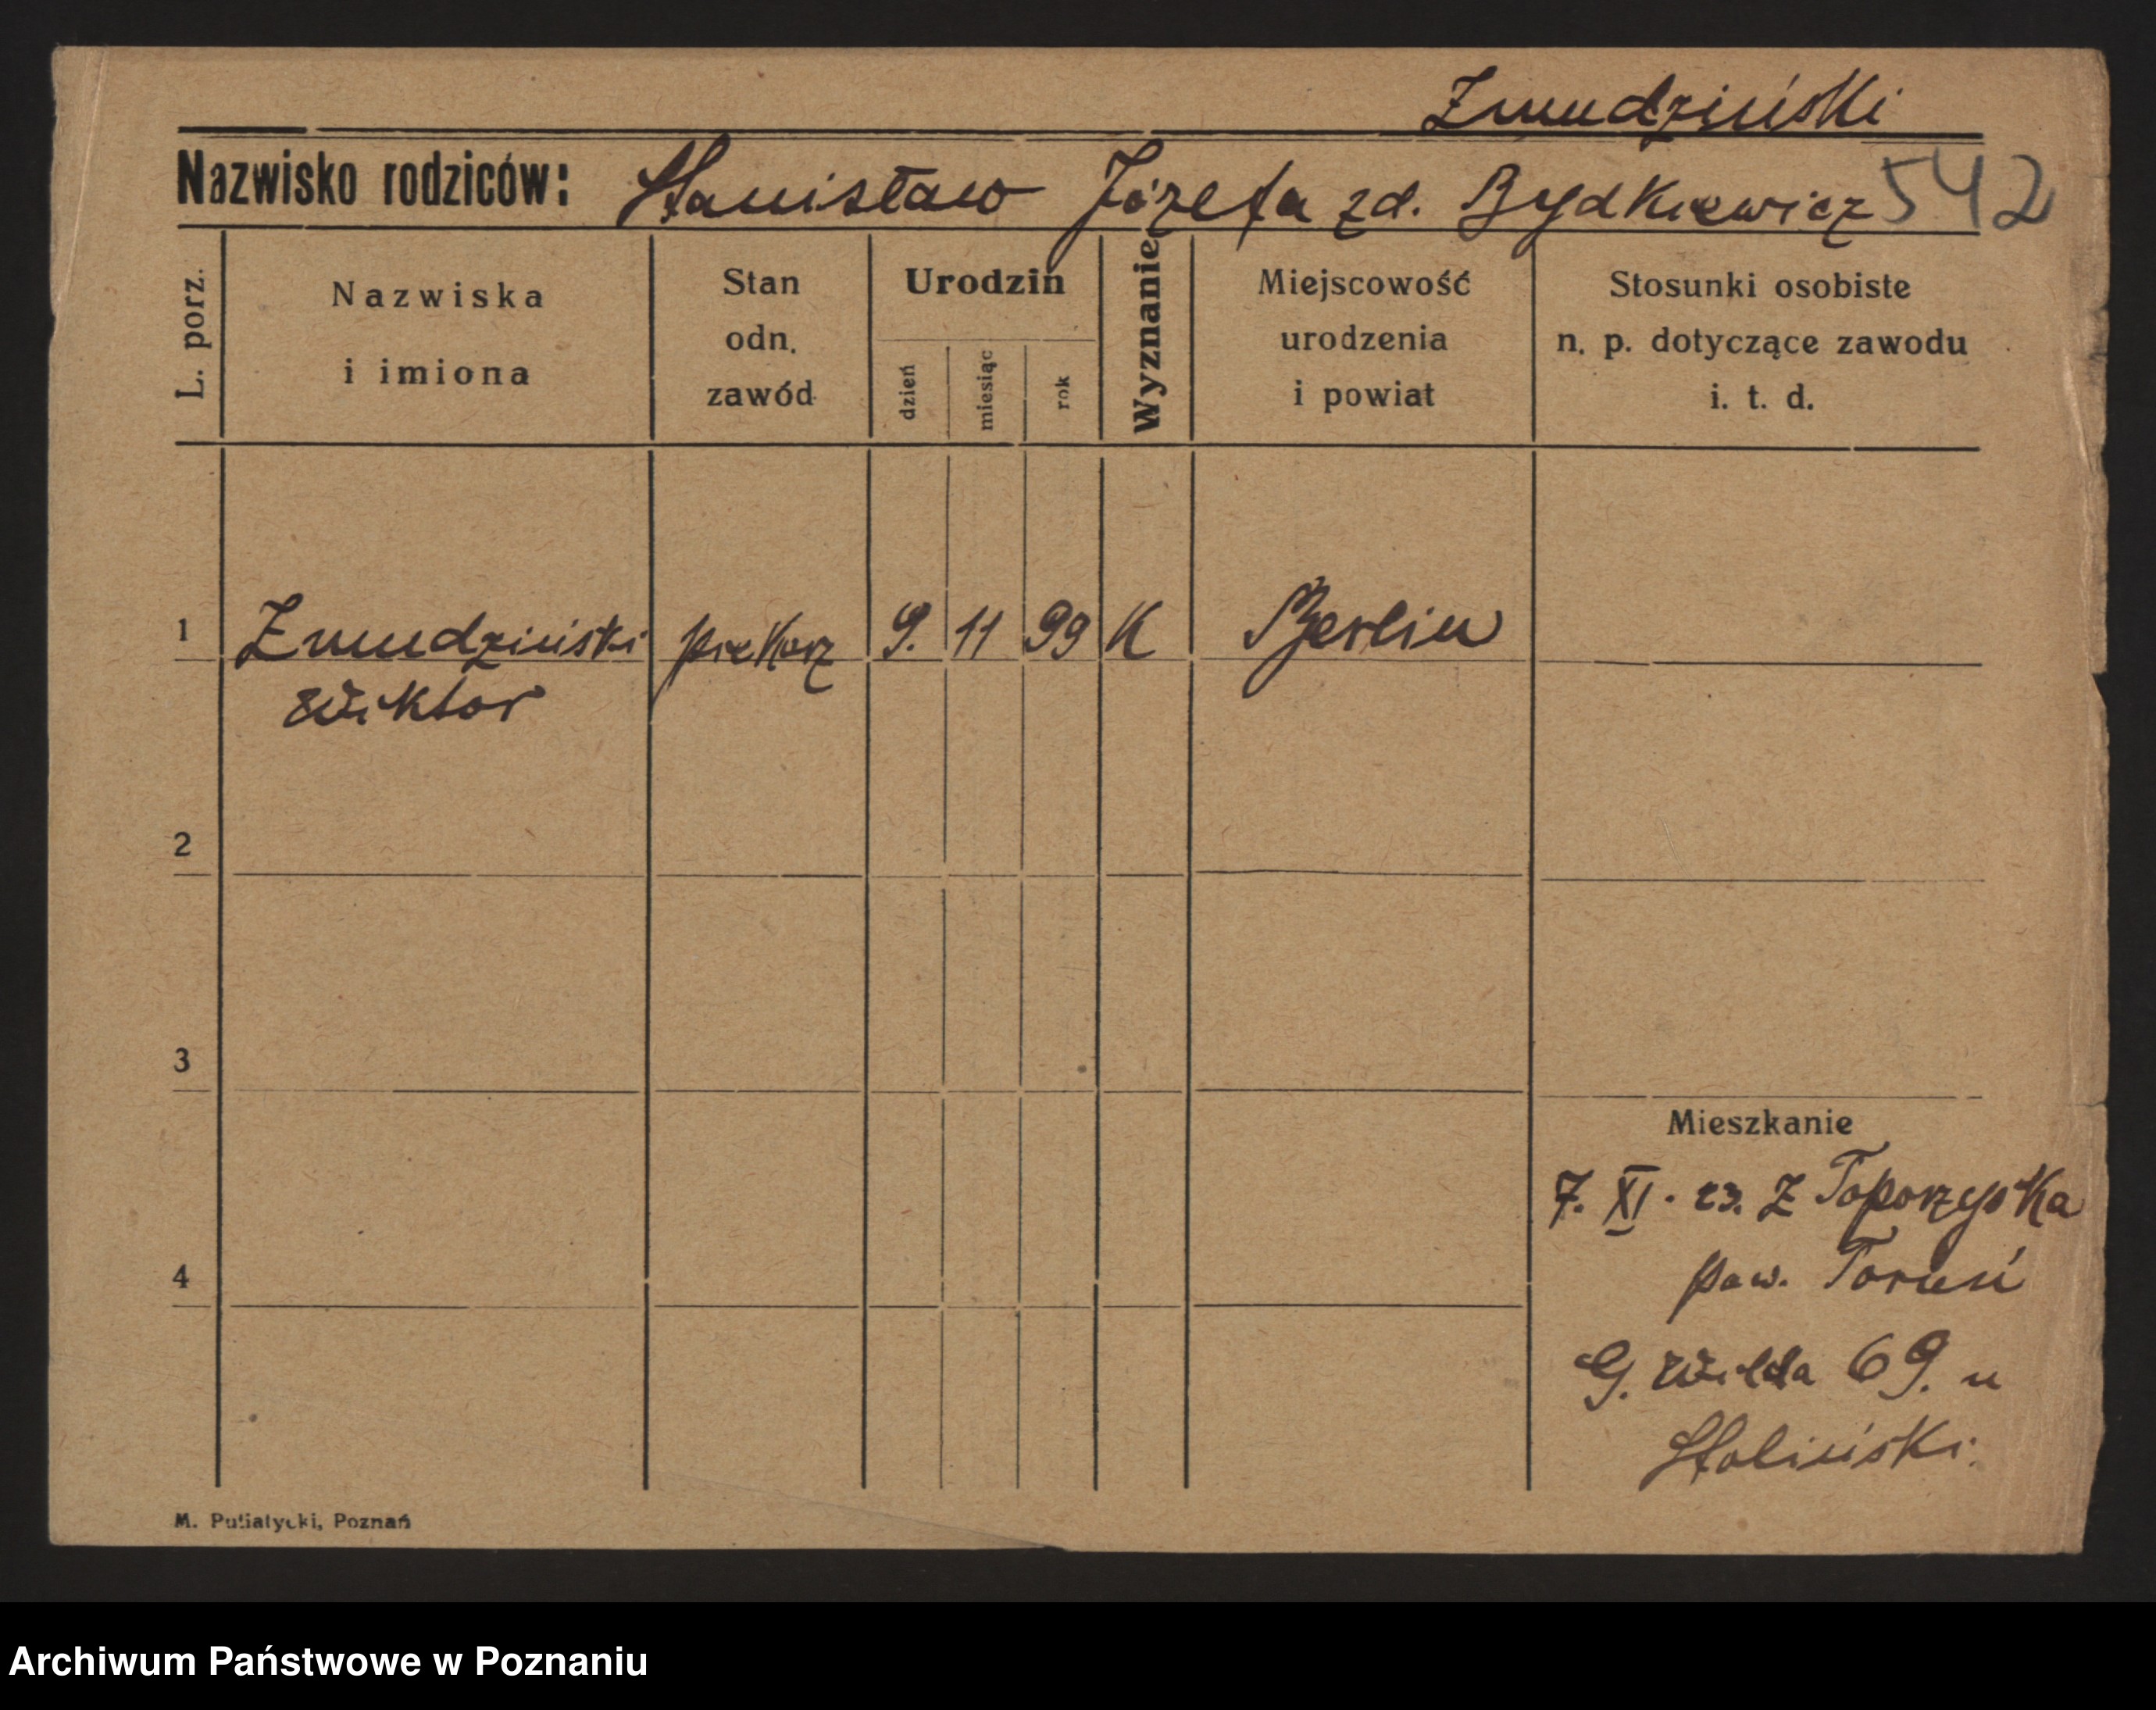 Zmudziński
Nazwisko rodziców: Stanisław Józefa zd. Bydkiewicz 542
L. porz.
Nazwiska
i imiona
Stan
odn.
zawód
Urodzin
dzień
miesiąc
rok
Wyznanie
Miejscowość
urodzenia
i powiat
Stosunki osobiste
n. p. dotyczące zawodu
i. t. d.
1 Zmudziński piekarz 9. 11 99 K Berlin
Wiktor
2
3
Mieszkanie
7. XI. 23. Z Toporzyska
pow. Toruń
4
G. Wilda 69. u
Stoliński.
M. Putiatycki, Poznań
Archiwum Państwowe w Poznaniu